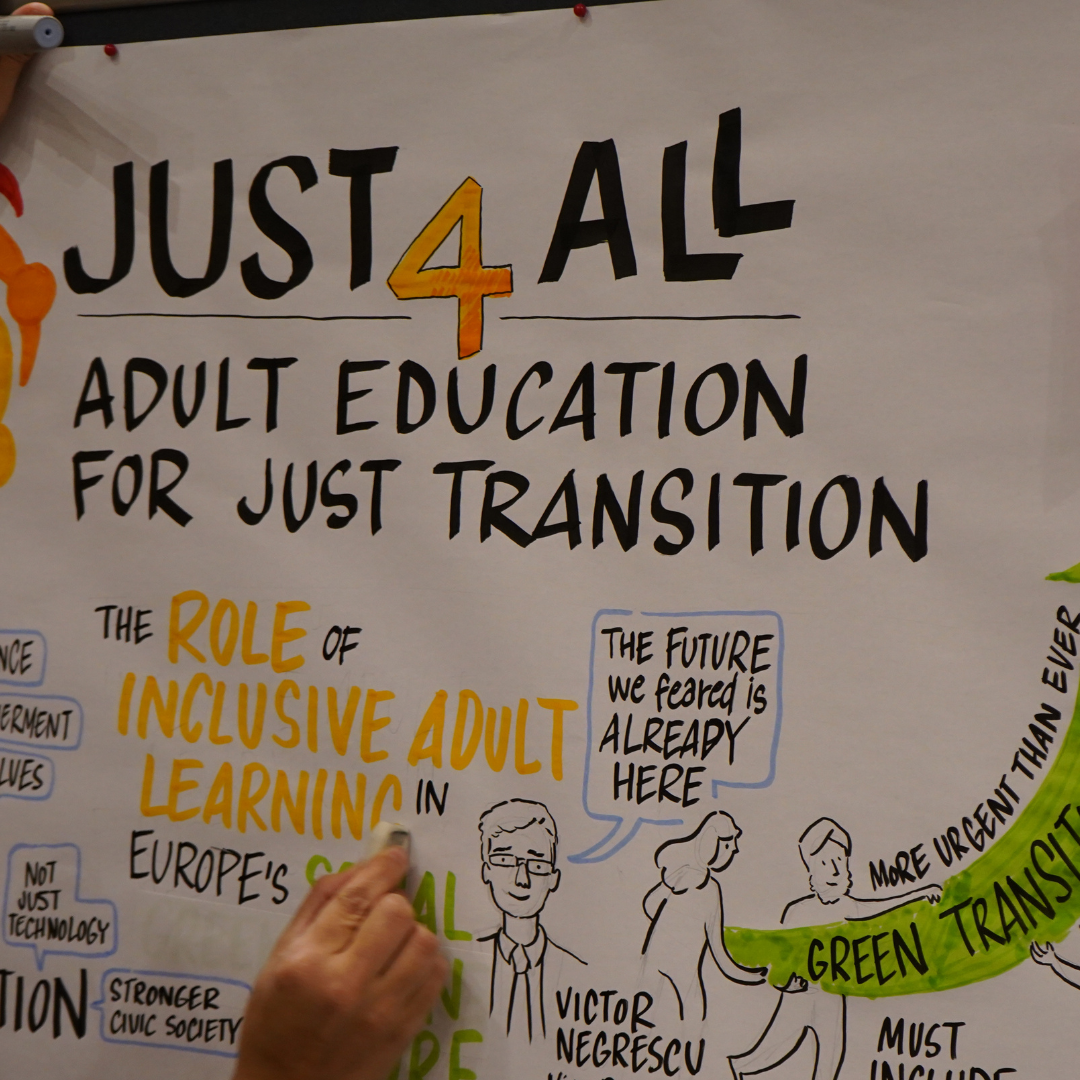 JUST 4 ALL
ADULT EDUCATION
FOR JUST TRANSITION
THE ROLE OF
INCLUSIVE ADULT
LEARNING IN
EUROPE'S
THE FUTURE
we feared is
ALREADY
HERE
NOT
JUST
TECHNOLOGY
STRONGER
CIVIC SOCIETY
VICTOR
NEGRESCU
MORE URGENT THAN EVER
GREEN
MUST
INCLUDE